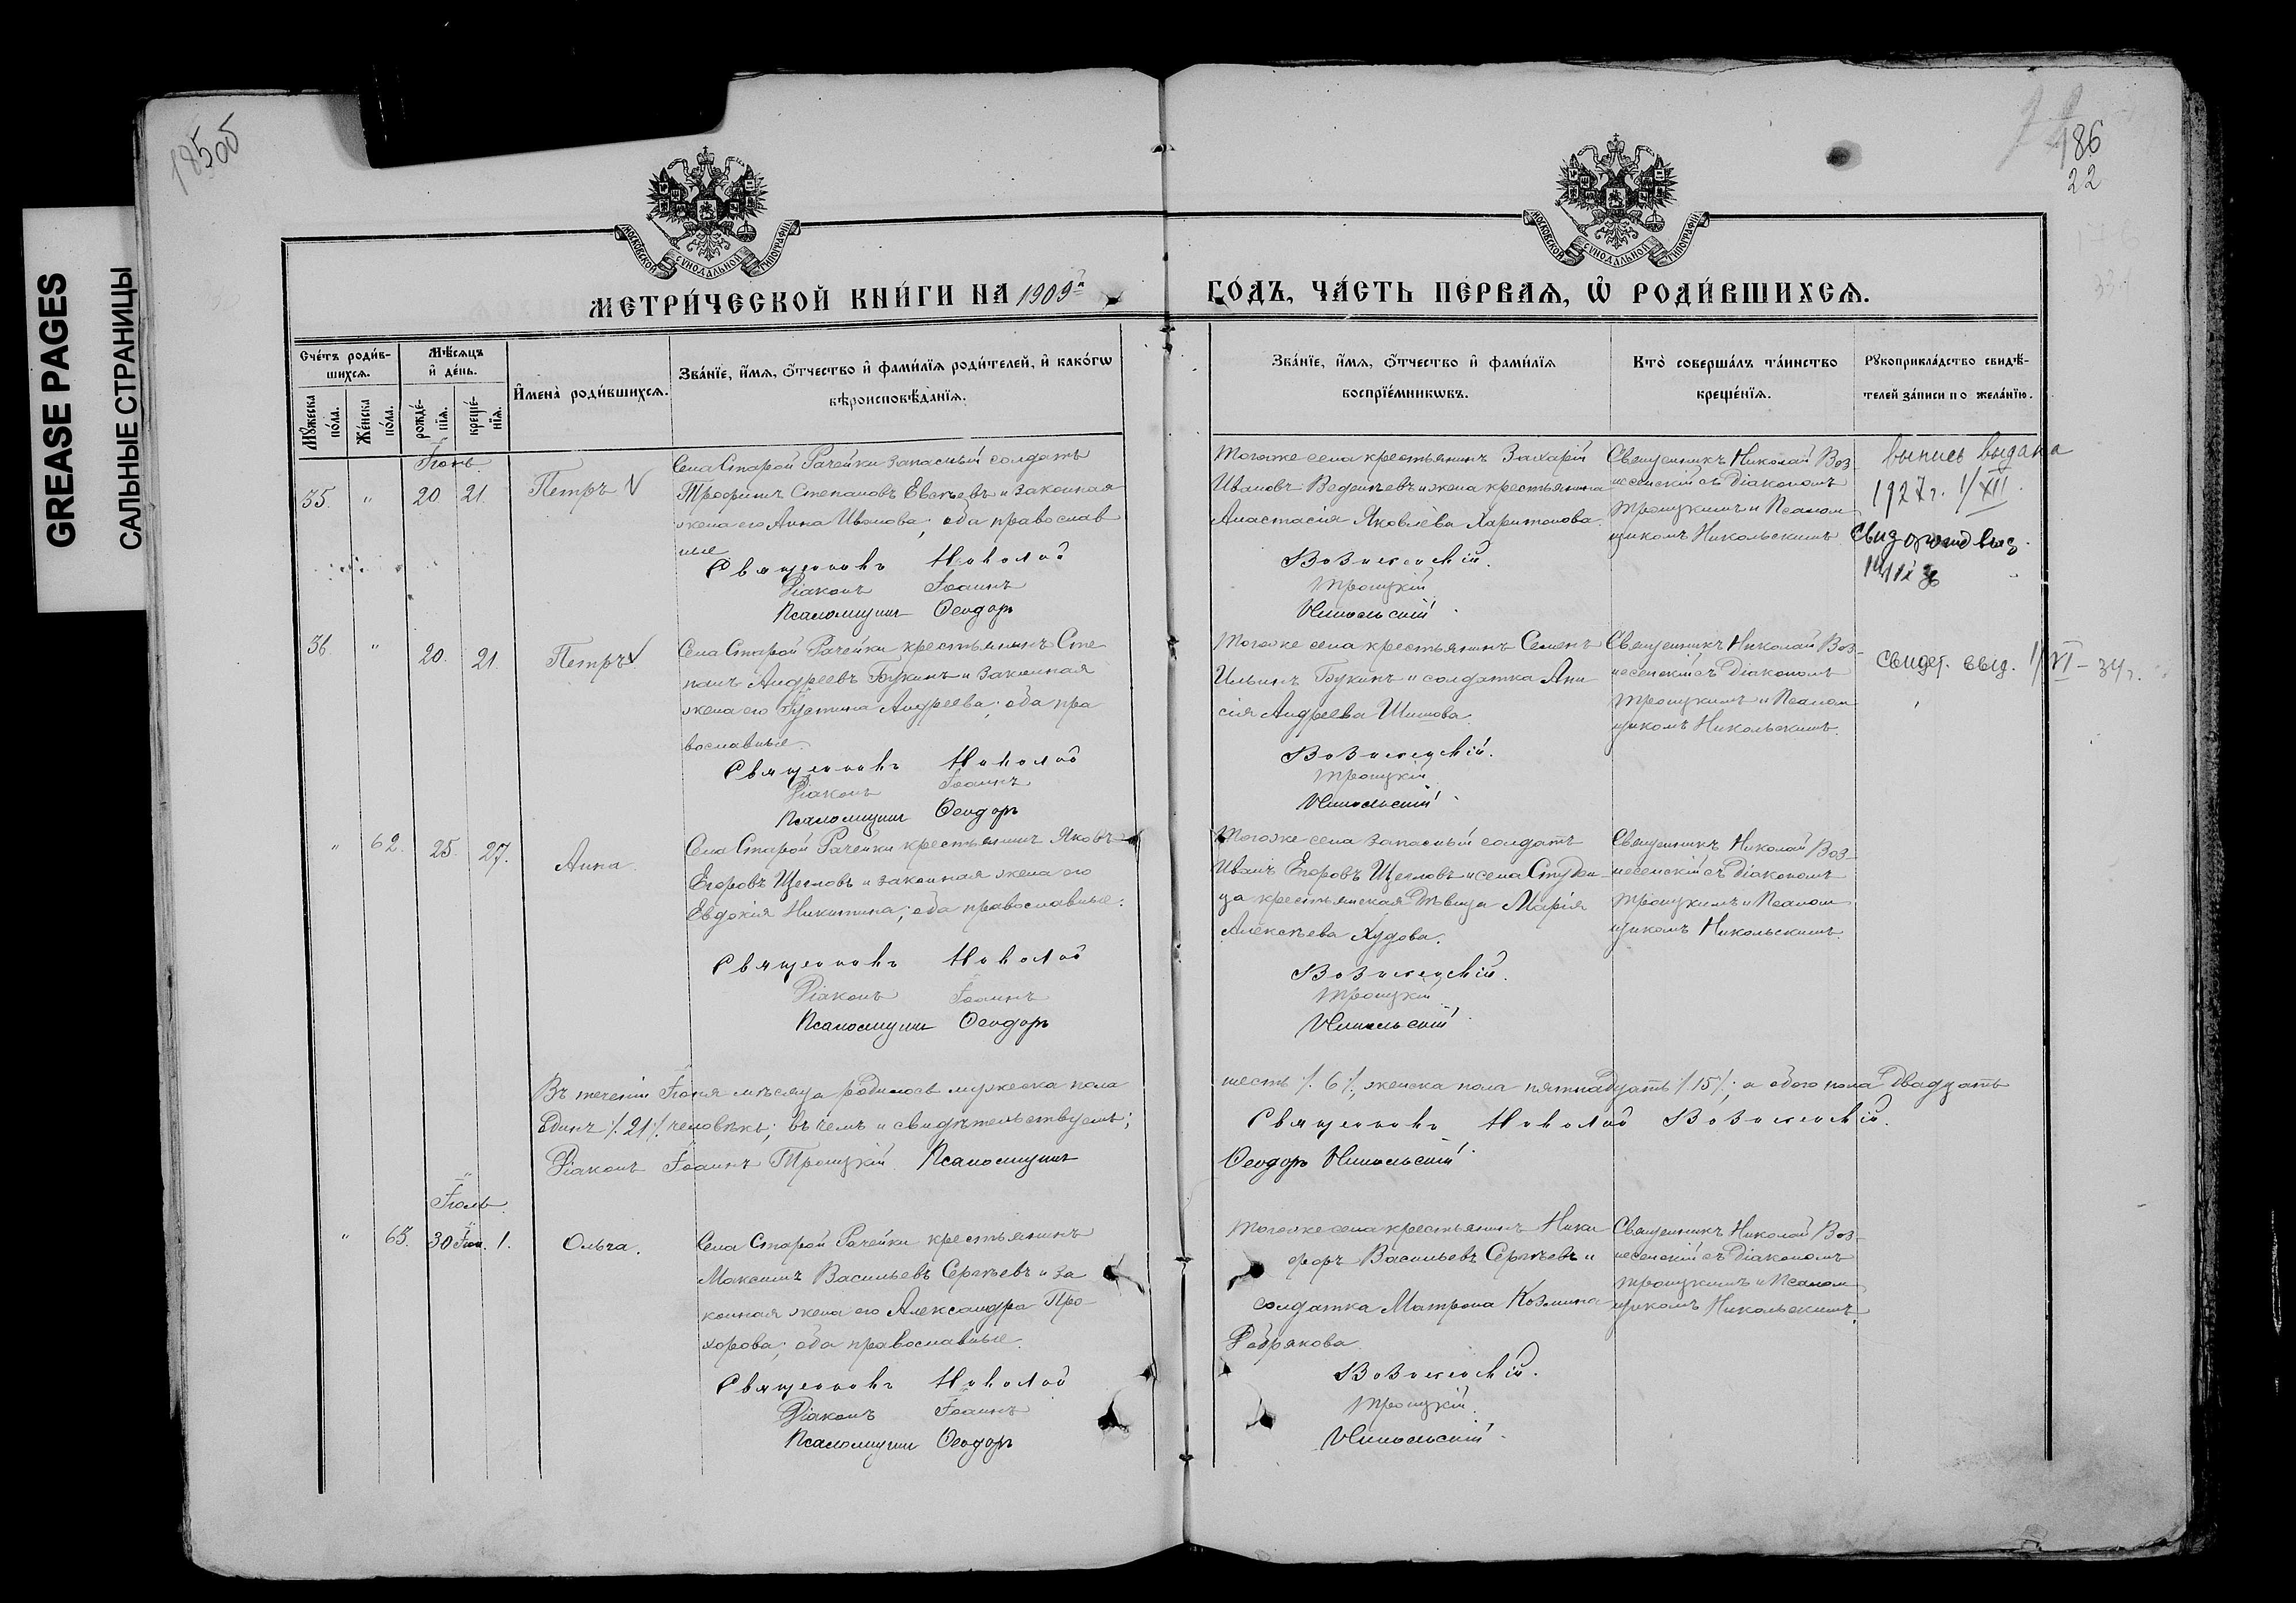 GREASE PAGES
САЛЬНЫЕ СТРАНИЦЫ
186
22
МОСКОВСКОЙ СѴНОДАЛЬНОЙ ТИПОГРАФІИ
МОСКОВСКОЙ СѴНОДАЛЬНОЙ ТИПОГРАФІИ
МЕТРИ́ЧЕСКОЙ КНИ́ГИ НА 1909й
ГО́ДЪ, ЧА́СТЬ ПЕ́РВАЯ, Ѡ҆ РОДИ́ВШИХСЯ.
Сче́тъ роди́вшихся.
Му́жеска по́ла.
Же́нска по́ла.
Мѣ́сяцъ и҆ де́нь.
рожде́нія.
креще́нія.
И҆мена̀ роди́вшихся.
Зва́нїе, и҆́мя, ѻ҆́тчество и҆ фами́лїя роди́телей, и҆ како́гѡ
вѣроисповѣ́данїя.
Зва́нїе, и҆́мя, ѻ҆́тчество и҆ фами́лїя
воспрїе́мникѡвъ.
Кто̀ соверша́лъ та́инство
креще́нїя.
Рꙋкоприкла́дство свидѣ́-
телей за́писи по жела́нїю.
Іюнь.
35. " 20 21. Петръ V
Села Старой Рачейки запасный солдатъ
Трофимъ Степановъ Евсѣевъ и законная
жена его Анна Иванова; оба православ
ные
Священникъ Николай
Діаконъ Іоаннъ
Псаломщикъ Ѳеодоръ
Тогоже села крестьянинъ Захарій
Ивановъ Веденѣевъ и жена крестьянина
Анастасія Яковлева Харитонова.
Вознесенскій.
Троицкій
Никольскій
Священникъ Николай Воз-
несенскій съ Діакономъ
Троицкимъ и Псалом
щикомъ Никольскимъ
выпись выдана
1927 г. 1/XII.
36. " 20. 21. Петръ V
Села Старой Рачейки крестьянинъ Сте
панъ Андреевъ Букинъ и законная
жена его Іустина Андреева; оба пра
вославные.
Священникъ Николай
Діаконъ Іоаннъ
Псаломщикъ Ѳеодоръ
Тогоже села крестьянинъ Семенъ
Ильинъ Букинъ и солдатка Ани
сія Андреева Шишова.
Вознесенскій.
Троицкій
Никольскій
Священникъ Николай Воз-
несенскій съ Діакономъ
Троицкимъ и Псалом
щикомъ Никольскимъ.
свидет. выд. 1/VI - 34 г.
" 62. 25. 27. Анна
Села Старой Рачейки крестьянинъ Яковъ
Егоровъ Щегловъ и законная жена его
Евдокія Никитина; оба православные.
Священникъ Николай
Діаконъ Іоаннъ
Псаломщикъ Ѳеодоръ
Тогоже села запасный солдатъ
Иванъ Егоровъ Щегловъ и села Студен-
ца крестьянская дѣвица Марія
Алексѣева Худова.
Вознесенскій.
Троицкій
Никольскій
Священникъ Николай Воз-
несенскій съ Діакономъ
Троицкимъ и Псалом
щикомъ Никольскимъ.
Въ теченіи Іюня мѣсяца родилось мужеска пола
шесть ·/. 6 ·/., женска пола пятнадцать ·/. 15 ·/.; а обоего пола двадцать
Единъ ·/. 21 ·/. человѣкъ; въ чемъ и свидѣтельствуемъ;
Священникъ Николай Вознесенскій.
Діаконъ Іоаннъ Троицкій. Псаломщикъ
Ѳеодоръ Никольскій
Іюль.
" 63. 30 Іюн. 1. Ольга.
Села Старой Рачейки крестьянинъ
Максимъ Васильевъ Сергѣевъ и за
конная жена его Александра Про-
хорова; оба православные.
Священникъ Николай
Діаконъ Іоаннъ
Псаломщикъ Ѳеодоръ
Тогоже села крестьянинъ Ники
форъ Васильевъ Сергѣевъ и
солдатка Матрона Козмина
Вознесенскій.
Троицкій.
Никольскій
Священникъ Николай Воз-
несенскій съ Діакономъ
Троицкимъ и Псалом
щикомъ Никольскимъ.